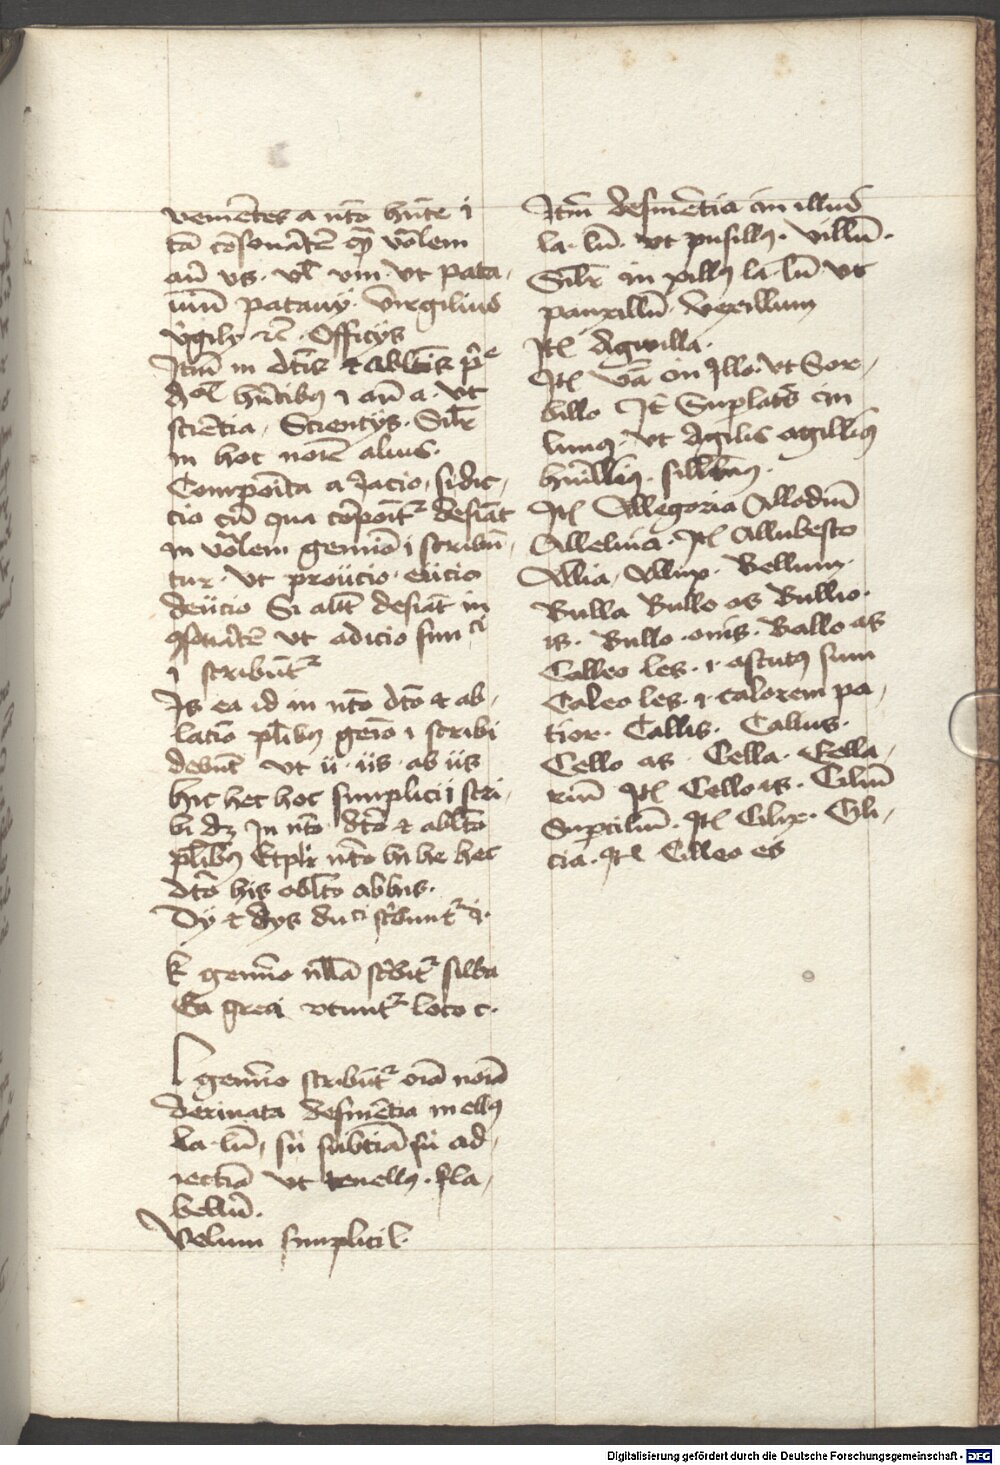 venie͂tes a nt͂o hn͂te i
ta͂ co͂sonãte͂ qꝫ vo͂lem
an͂ vs · vl͂ vm · vt pata,
uiu͂ patauÿ Virgilius
v̉gilÿ ⁊c͂ · Officÿs
Itm͂ in dt͂is et ablt͂is
hn͂tibꝰ i an͂ a · vt
scie͂tia, Scientÿs · Silr͂
in hoc nore͂ alius ·
Compoı͂ta a Jacio, si dic,
tio cu͂ qua co͂poı͂t᷑ desiãt
in vo͂lem gemio͂ i scribu͂,
tur · vt proiicio · eiicio
deiicio Si aut͂ desiãt in
ꝯsonãte͂ vt adicio sim ci
i scribu͂t᷑
Is ea id in nt͂o dt͂o et ab,
latio͂ pl͂ibꝰ gem͂o i scribi
debe͂t vt ii · iis · ab iis
hic hec hoc simplici i scri,
bi dꝫ In nt͂o dt͂o et ablt͂o
pl͂ibꝰ Et plr͂ nt͂o hi he hec
dt͂o his ablt͂o ab his ·
Dÿ et dÿs du ci sc͂bunt᷑ ij ·
k gemi͂o nll͂a sc͂bit᷑ silba
Ea greci vtunt᷑ loco c ·
L gemi͂o scribu͂t᷑ oı͂a noı͂a
deriuata desine͂tia in ellꝰ
la · lu͂, su͂ subtiãa su͂ ad,
iectia͂ vt tenellꝰ · fla,
bellu͂ ·
Velum simplici l ·
Itm͂ desine͂tia in illus
la · lu͂ · vt pusillꝰ · villu͂ ·
Silr͂ in xillꝰ la · lu͂ vt
pauxillu͂ · vexillum
Itꝭ Aqwilla ·
Itꝭ v͂a in Illo · vt Sor,
billo It͂ Suplatã in
limꝰ · vt Agilis agillimꝰ
humillimꝰ · sillimꝰ ·
Itꝭ Allegoria Allodiu͂
Alleluia · Itꝭ Allubesco
Allia, Allux · Bellum ·
Bulla Bullo as Bullio ·
is · Bullo · onis · Ballo as
Calleo les · i · astutꝰ sum
Caleo les · i · calorem pa,
tior · Callis · Callus ·
Cello as · Cella · Cella,
riu͂ Itꝭ Cello is · Ciliu͂
Supciliu͂ · Itꝭ Cilix · Cili,
cia · Itꝭ Cilleo es
Digitalisierung gefördert durch die Deutsche Forschungsgemeinschaft - DFG